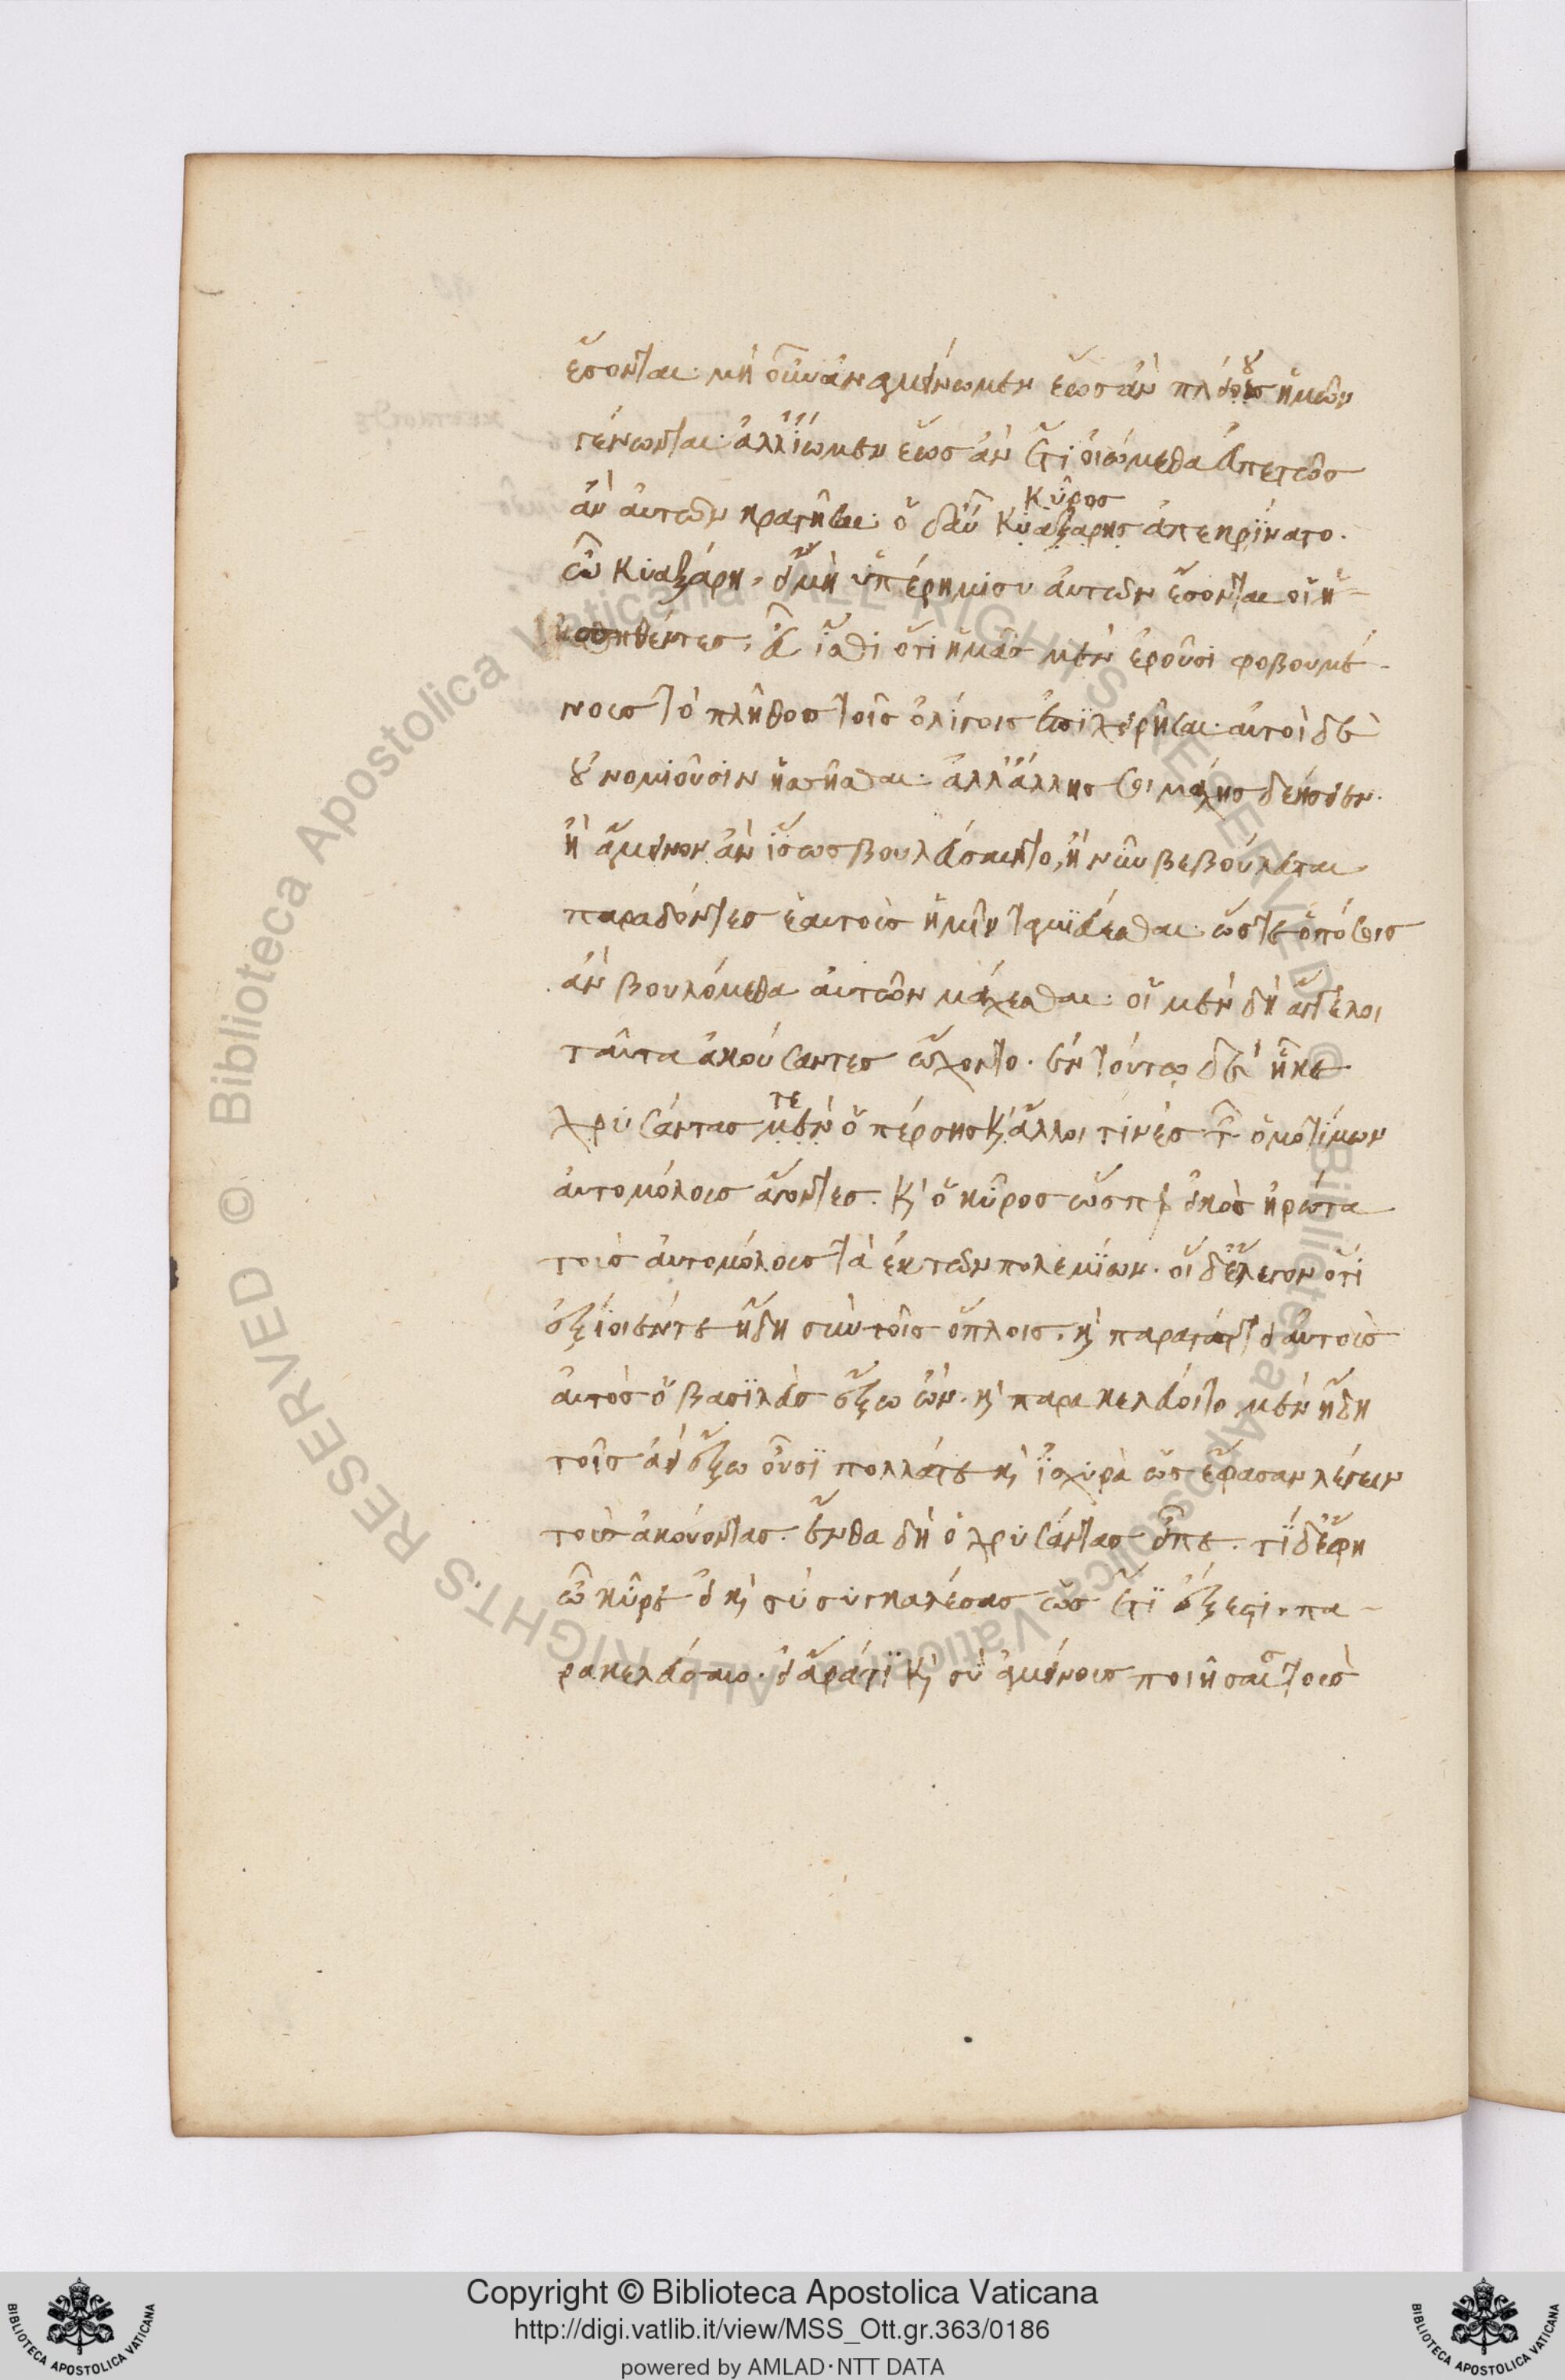 ἔσονται· μὴ οὖν ἀναμείνωμεν ἕως ἂν πλείους ἡμῶν
γένωνται· ἀλλ' ἴωμεν ἕως ἂν ἔτι οἰώμεθα εὐπετῶς
ἂν αὐτῶν κρατῆσαι· ὁ δ' αὖ Κυαξάρης Κῦρος ἀπεκρίνατο.
ὦ Κυαξάρη, εἰ μὴ ὑπὲρ ἥμισυ αὐτῶν ἔσονται οἱ ἡ-
ττηθέντες, εὖ ἴσθι ὅτι ἡμᾶς μὲν ἐροῦσι φοβουμέ-
νους τὸ πλῆθος τοῖς ὀλίγοις ἐπιχειρῆσαι· αὐτοὶ δὲ
οὐ νομιοῦσιν ἡττῆσθαι· ἀλλ' ἄλλης σοι μάχης δεήσειεν.
ἢ ἄμεινον ἂν ἴσως βουλεύσαιντο, ἢ νῦν βεβούλευται
παραδόντες ἑαυτοὺς ἡμῖν ταμιεύεσθαι· ὥστε ὁπόσοις
ἂν βουλόμεθα αὐτῶν μάχεσθαι· οἱ μὲν δὴ ἄγγελοι
ταῦτα ἀκούσαντες ᾤχοντο. ἐν τούτῳ δὲ ἧκε
χρυσάντας μὲν τε ὁ πέρσης καὶ ἄλλοι τινὲς τῶν ὁμοτίμων
αὐτομόλους ἄγοντες. καὶ ὁ κῦρος ὥσπερ εἰκὸς ἠρώτα
τοὺς αὐτομόλους τὰ ἐκ τῶν πολεμίων. οἱ δ' ἔλεγον ὅτι
ἐξίοιέν τε ἤδη σὺν τοῖς ὅπλοις. καὶ παρατάττει αὐτοὺς
αὐτὸς ὁ βασιλεὺς ἔξω ὤν. καὶ παρακελεύοιτο μὲν ἤδη
τοῖς ἀεὶ ἔξω οὖσι πολλά τε καὶ ἰσχυρὰ ὡς ἔφασαν λέγειν
τοὺς ἀκούοντας. ἔνθα δὴ ὁ χρυσάντας εἶπε. τί δ' ἔφη
ὦ κῦρε εἰ καὶ σὺ συγκαλέσας ἕως ἔτι ἔξεστι. πα-
ρακελεύσαιο. εἰ ἄρα τι καὶ σὺ ἀμείνους ποιήσαις τοὺς
Copyright © Biblioteca Apostolica Vaticana
http://digi.vatlib.it/view/MSS_Ott.gr.363/0186
powered by AMLAD·NTT DATA